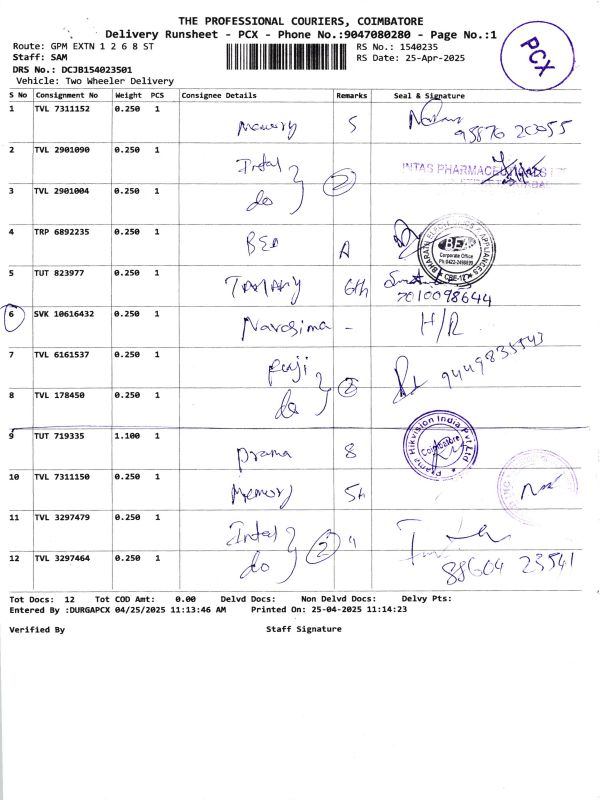 THE PROFESSIONAL COURIERS, COIMBATORE
Delivery Runsheet - PCX - Phone No.:9047080280 - Page No.:1
Route: GPM EXTN 1 2 6 8 ST
RS No.: 1540235
Staff: SAM
RS Date: 25-Apr-2025
DRS No.: DCJB154023501
Vehicle: Two Wheeler Delivery
PCX
S No Consignment No Weight PCS Consignee Details Remarks Seal & Signature
1 TVL 7311152 0.250 1 Memory 5
2 TVL 2901090 0.250 1 2
INTAS PHARMACEUTICALS
3 TVL 2901004 0.250 1 do
4 TRP 6892235 0.250 1 A
BHARATH ELECTRONICS & APPLIANCES
BEA
Corporate Office
CBE-12
5 TUT 823977 0.250 1 6th
7010098644
6 SVK 10616432 0.250 1 Narasima - H/R
7 TVL 6161537 0.250 1 fuji 2 9449835543
8 TVL 178450 0.250 1 do
9 TUT 719335 1.100 1 prama 8
Prama Hikvision India Pvt Ltd
Coimbatore
10 TVL 7311150 0.250 1 Memory 5th
11 TVL 3297479 0.250 1 2 "
12 TVL 3297464 0.250 1 do 88604 23541
Tot Docs: 12 Tot COD Amt: 0.00 Delvd Docs: Non Delvd Docs: Delvy Pts:
Entered By :DURGAPCX 04/25/2025 11:13:46 AM Printed On: 25-04-2025 11:14:23
Verified By Staff Signature